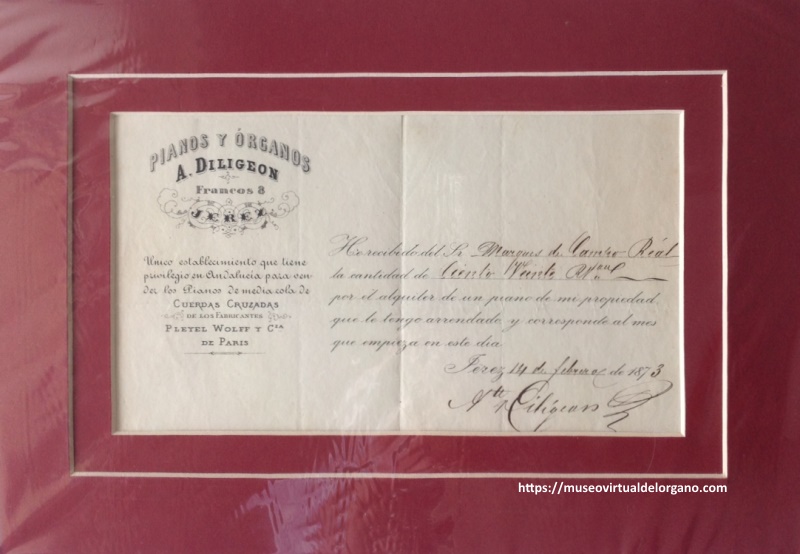 PIANOS Y ÓRGANOS
A. DILIGEON
Francos 8
JEREZ
Unico establecimiento que tiene
privilegio en Andalucía para ven
der los Pianos de media cola de
CUERDAS CRUZADAS
DE LOS FABRICANTES
PLEYEL WOLFF Y Cia
DE PARIS
He recibido del Sr Marques de Campo Réal
la cantidad de Ciento Veinte
por el alquiler de un piano de mi propiedad,
que le tengo arrendado y corresponde al mes
que empieza en este dia
Jerez 14 de febrero de 1873
Diligeon
https://museovirtualdelorgano.com